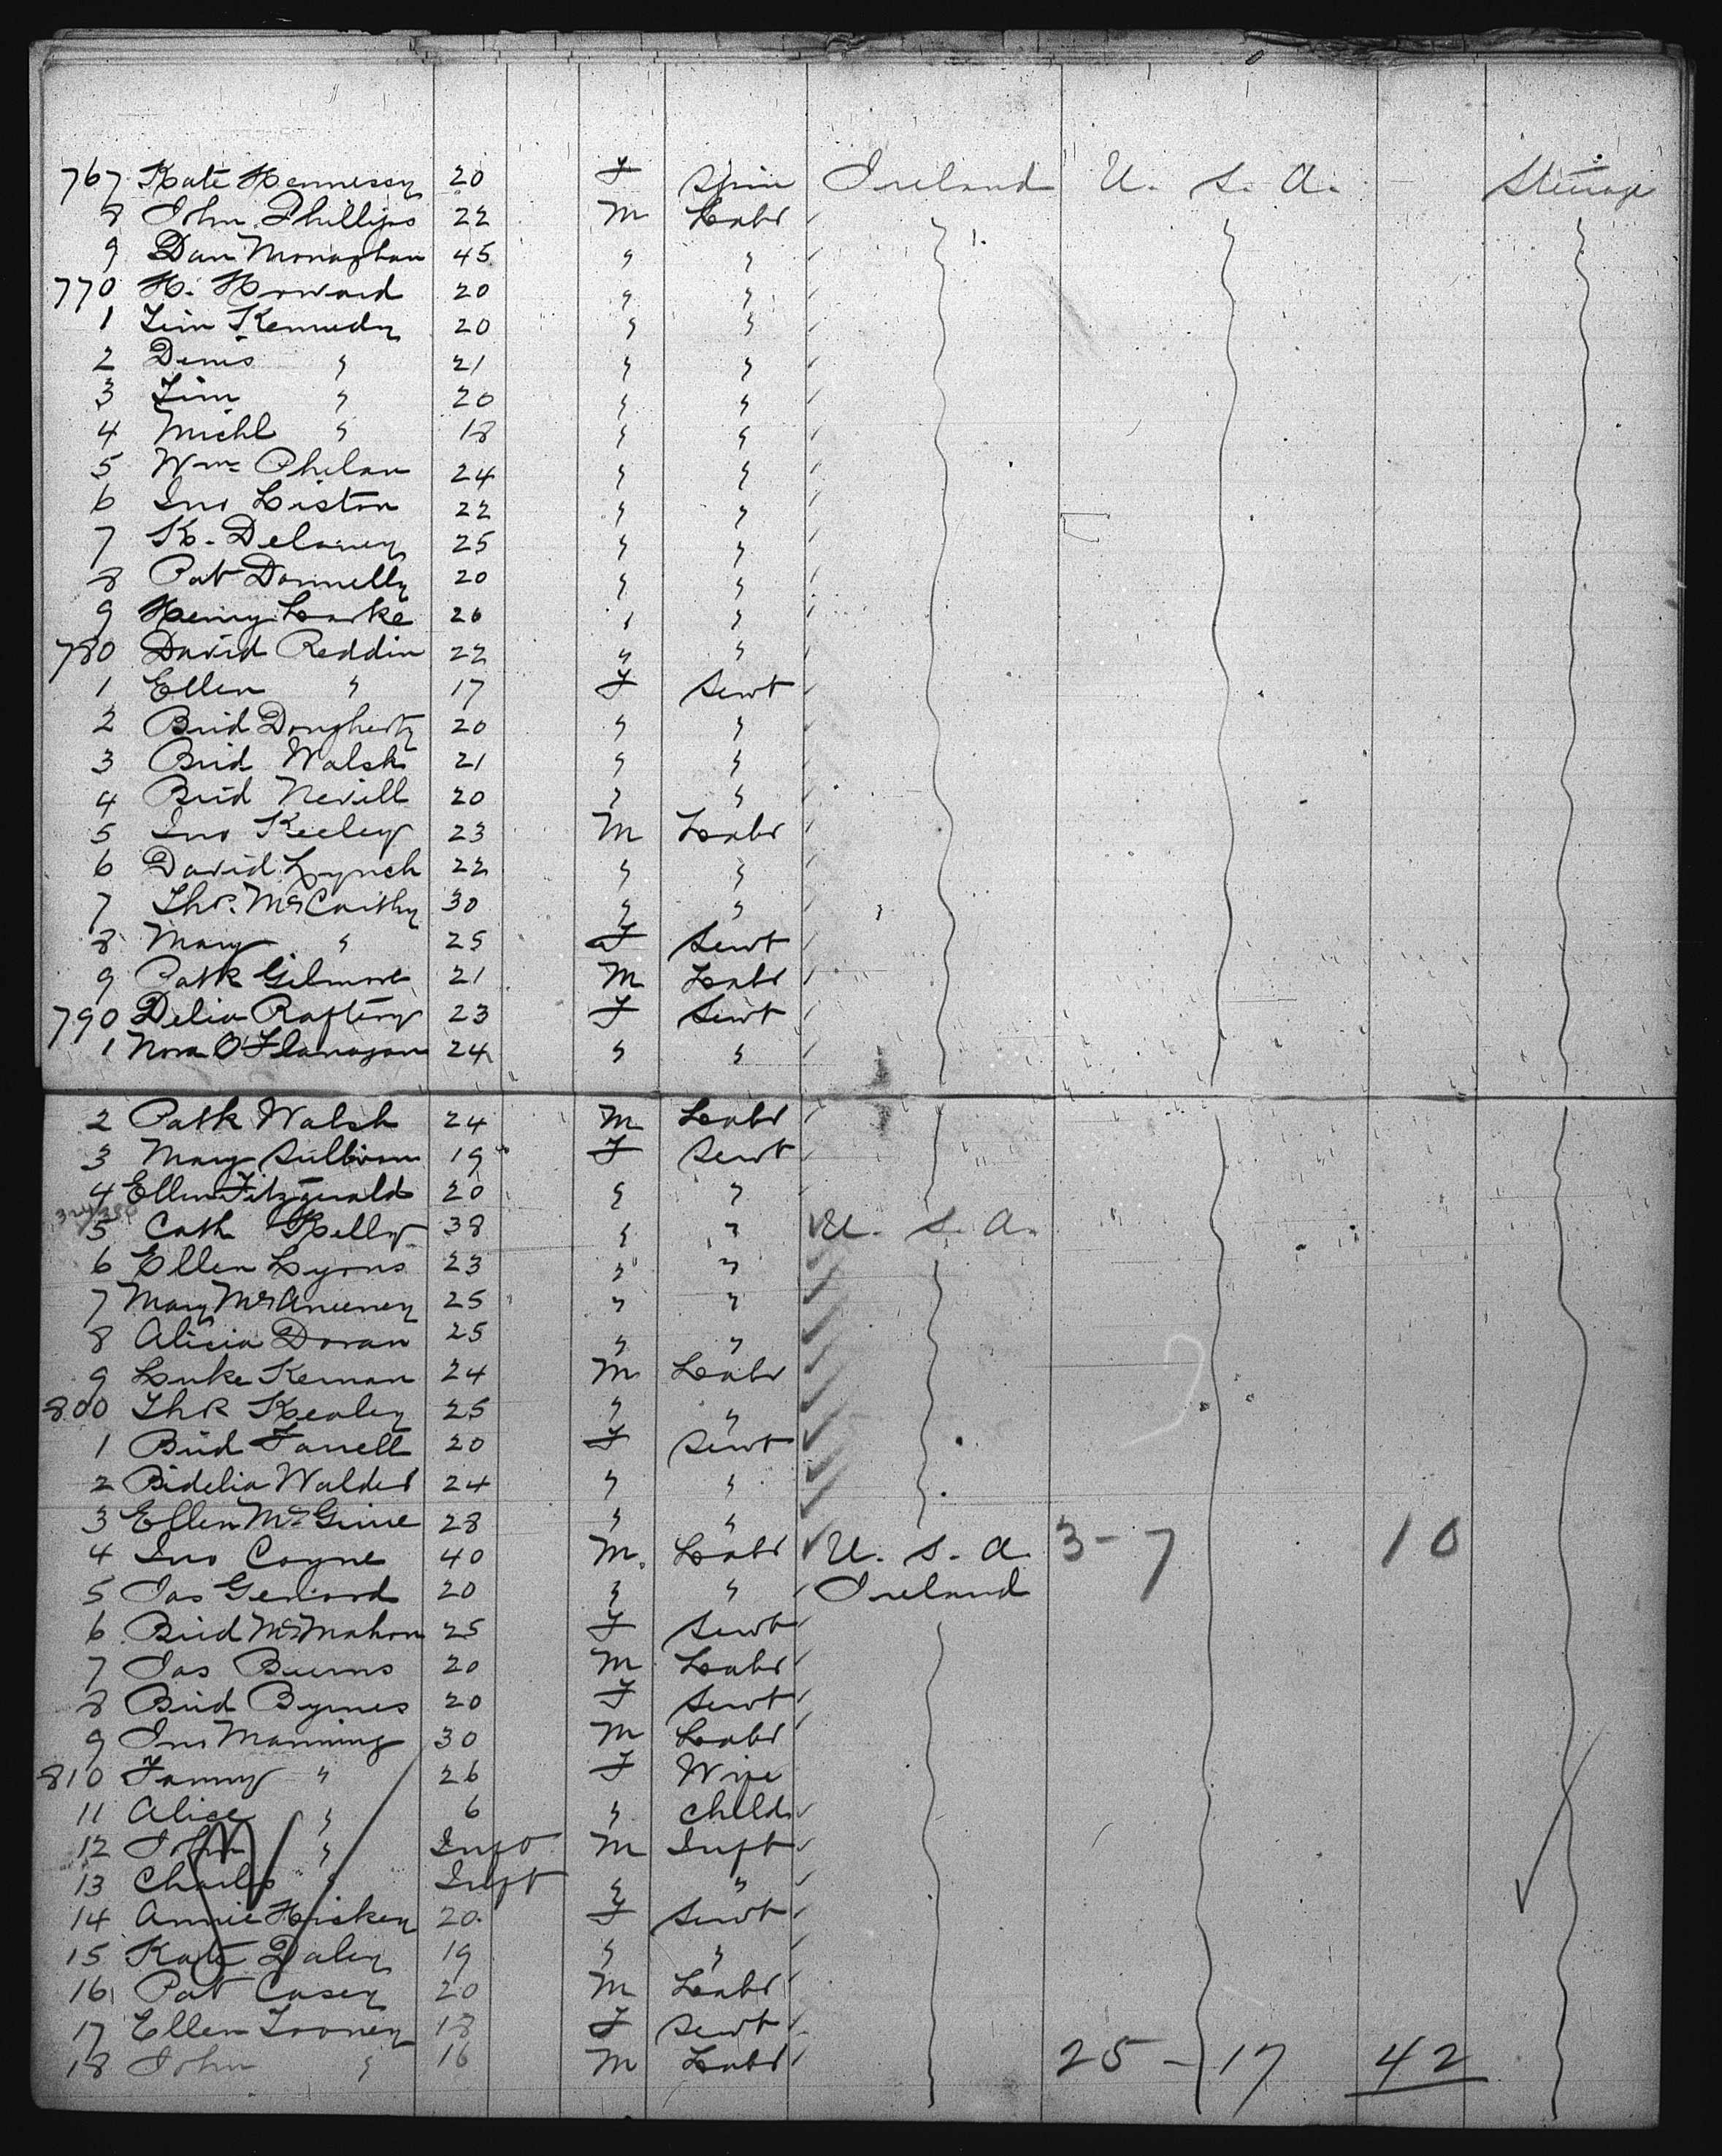 767 Kate Hennessy 20 F Spin Ireland U. S. A. Steerage
8 John Phillips 22 M Labr
9 Dan Monaghan 45 " "
770 H. Howard 20 " "
1 Tim Kennedy 20 " "
2 Denis " 21 " "
3 Tim " 20 " "
4 Michl " 18 " "
5 Wm Phelan 24 " "
6 Jno Liston 22 " "
7 K. Delaney 25 " "
8 Pat Donnelly 20 " "
9 Henry Larke 20 " "
780 David Reddin 22 " "
1 Ellen " 17 F Servt
2 Brid Dougherty 20 " "
3 Brid Walsh 21 " "
4 Brid Nevill 20 " "
5 Jno Keeley 23 M Labr
6 David Lynch 22 " "
7 Thos. McCarthy 30 " "
8 Mary " 25 F Servt
9 Patk Gilmore 21 M Labr
790 Delia Raftery 23 F Servt
1 Nora O'Flanagan 24 " "
2 Patk Walsh 24 M Labr
3 Mary Sullivan 19 F Servt
4 Ellen Fitzgerald 20 " "
5 Cath Kelly 38 " " U. S. A.
6 Ellen Lyons 23 " "
7 Mary McAneeney 25 " "
8 Alicia Doran 25 " "
9 Luke Kernan 24 M Labr
800 Thos Healey 25 " "
1 Brid Farrell 20 F Servt
2 Bidelia Walder 24 " "
3 Ellen McGuire 28 " "
4 Jno Coyne 40 M. Labr U. S. A. 3 - 7 10
5 Jas Gerrard 20 " " Ireland
6 Brid McMahon 25 F Servt
7 Jas Burns 20 M Labr
8 Brid Byrnes 20 F Servt
9 Jno Manning 30 M Labr
810 Fanny " 26 F Wife
11 Alice " 6 " Child
12 John " Inft M Inft
13 Charles " Inft " "
14 Annie Hickey 20 F Servt
15 Kate Daley 19 " "
16 Pat Casey 20 M Labr
17 Ellen Tooney 18 F Servt
18 John " 16 M Labr 25 - 17 42